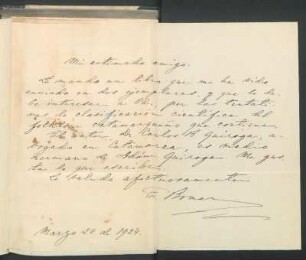 Mi estimado amigo:
Le mando un libro que me ha sido
enviado en dos ejemplares, y que le de-
be interesar a Vd., por las tentati-
vas de clasificación científica del
folklore catamarqueño que contiene.
El autor, Dr. Carlos B. Quiroga, a-
bogado en Catamarca, es medio
hermano de Adán Quiroga. Me gus-
ta lo que escribe.
Le saluda afectuosamente
Marzo 20 de 1924.